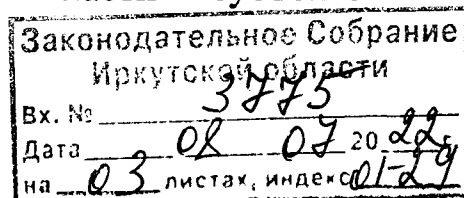 Законодательное Собрание
Иркутской области
Вх. № 3775
Дата 08 07 20 22 г.
на 03 листах, индекс 01-29